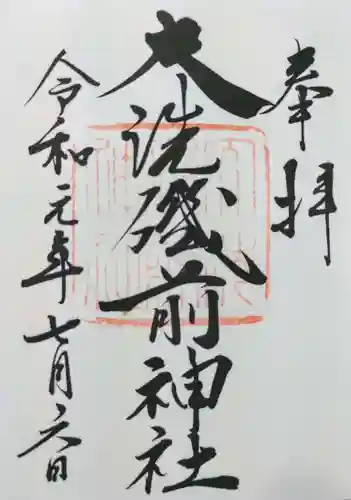 奉拝
大洗磯前神社
令和元年七月六日